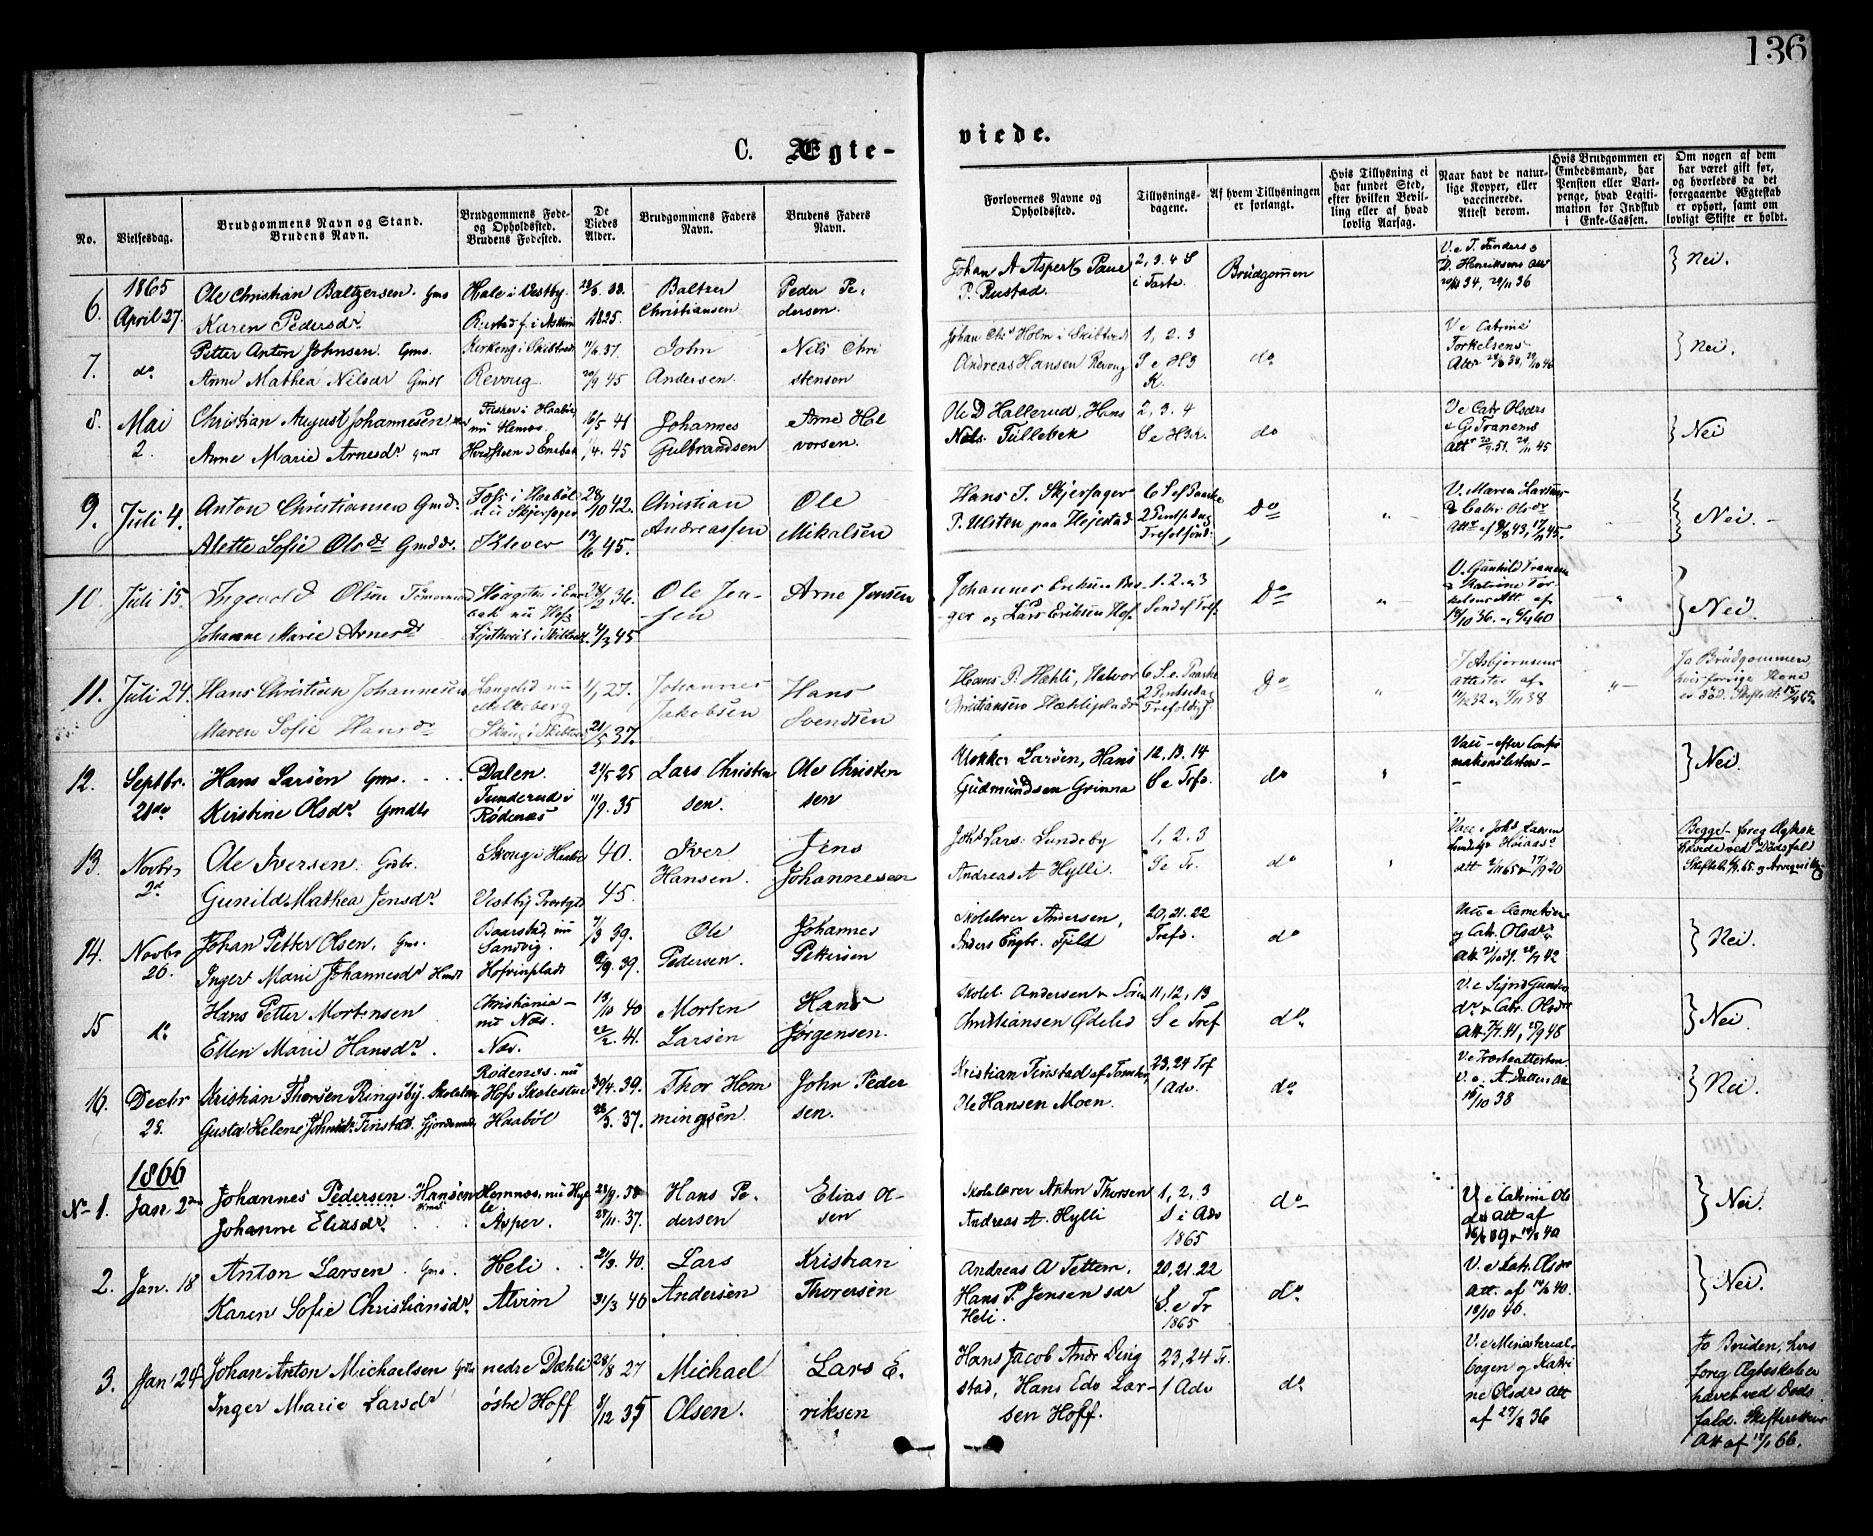 136
C. Ægte-
viede.
No.
Vielsesdag.
Brudgommens Navn og Stand.
Brudens Navn.
Brudgommens Føde-
og Opholdssted.
Brudens Fødested.
De
Viedes
Alder.
Brudgommens Faders
Navn.
Brudens Faders
Navn.
Forlovernes Navne og
Opholdssted.
Tillysnings-
dagene.
Af hvem Tillysningen
er forlangt.
Hvis Tillysning ei
har fundet Sted,
efter hvilken Bevil-
ling eller af hvad
lovlig Aarsag.
Naar havt de natur-
lige Kopper, eller
vaccinerede.
Attest derom.
Hvis Brudgommen er
Embedsmand, har
Pension eller Vart-
penge, hvad Legiti-
mation for Indskud
i Enke-Cassen.
Om nogen af dem
har været gift før,
og hvorledes da det
foregaaende Ægteskab
er ophørt, samt om
lovligt Skifte er holdt.
6. 1865 April 27.
Ole Christian Baltzersen. Gms
Karen Pedersdr
Hale i Vestby.
1825.
Baltzer
Christiansen
Peder Pe-
dersen.
Johan A Asper
P. Rustad.
2, 3. 4 S
i Faste.
Brudgommen
Nei.
7. do
Petter Anton Johnsen. Gms.
Anne Mathea Nilsdr Gmdt
Kirkeng i Skibtved
Revoug
11/6 37.
20/9 45
John
Andersen.
Nils Chri
stensen
Johan Chrs Holm i Skibtved
Andreas Hansen Revoug
1, 2. 3
S e H3
K.
do
V e Catrine
Torkelsens
Nei.
8. Mai 2.
Christian August Johannesen
Anne Marie Arnesdr Gmdt
nu Hemnes.
Hvidsteen i Enebak
16/5 41
1/4. 45
Johannes
Gulbrandsen
Arne Hal
vorsen.
Ole D Hallerud, Hans
Nils. Tillebek
2, 3. 4
S e H3K.
do
V e Catr Olsdrs
& G Tranems
Nei
9. Juli 4.
Anton Christiansen Gmdr.
Alette Sofie Olsdr Gmddr.
Foss i Haabøl
nu Skjersager
Klever
28/10 42.
13/6 45.
Christian
Andreassen
Ole
Mikalsen
Hans J. Skjersager
P. Ulsten paa Hejestad
6 S. ef Paaske
2 Pintsdag
Trefoldsønd.
Do
V. Maren Larsens
& Catr. Olsdr
Nei. -
10. Juli 15.
Ingevold Olsen Tømmermand
Johanne Marie Arnesdr
bak nu Hof
24/2 36.
4/3 45
Ole Jen-
sen
Arne Jensen
Johannes Eriksen Ber
ger og Lars Eriksen Hof.
1. 2. & 3
Sønd ef Tref.
Do
V. Gunhild Tranem
& Katrine Tor-
kelsens Att. af
18/10 36. og 6/4 60
Nei.
11. Juli 24.
Hans Christian Johannesen
Maren Sofie Hansdr
Langelid nu
Melleberg
Skoug i Skibtved
1/1 27.
21/5 37.
Johannes
Jakobsen
Hans
Svendsen
Hans P. Hæhli, Halvor
Christiansen Hæhliplads
6 S. e. Paaske
2 Pintsedag
Trefoldigh.
Do
J Asbjørnsens
Attester af
11/12 32 & 7/11 38
Ja Brudgommen
hvis forrige Kone
er død.
12. Septbr. 28de
Hans Larsen Gms.
Kirstine Olsdr Gmdt
Dalen.
Tunderud i
Rødenæs
21/5 25
11/9. 35
Lars Christen
sen.
Ole Christen
sen
Klokker Larsen, Hans
Gudmundsen Grinna
12. 13. 14
S e Trfo.
do
Vacc - efter Confir
mationslisten -
Nei.
13. Novbr 2de
Ole Iversen. Gmbr.
Gunild Mathea Jensdr
Skoug i Haabøl
40.
45.
Iver
Hansen.
Jens
Johannesen
Lars. Lundeby
Andreas A Hylli.
1, 2. 3
S e Tr.
do
Begges foreg Ægtesk
hævede ved Dødsfald
14. Novbr 26.
Johan Petter Olsen. Gms.
Inger Marie Johannesdr
Baarstad, nu
Sandvig.
Hofvinplads
7/3 39.
2/9. 39.
Ole
Pedersen.
Johannes
Pettersen
Skolelærer Andersen,
Anders Engbr. Fjeld
20, 21. 22
Trefo.
do
Nei.
15 do
Hans Petter Mortensen
Ellen Marie Hansdr.
Christiania -
nu Næs.
Næs.
13/10 40
22/2. 41.
Morten
Larsen
Hans
Jørgensen.
Skolel. Andersen &
Christiansen Ødelid
11, 12, 13
S e Tref
do.
Nei.
16. Decbr 28.
Kristian Thorsen Ringsby. Skolelær
Gustav Helene Johnsdr Finstad.
Rødenæs. nu
Hofs Skolestue
Haabøl
30/4. 39.
28/3. 37.
Thor Hem
mingsen
John Peder
sen.
Kristian Finstad af Tomter,
Ole Hansen Moen.
23, 24 Trf
1 Adv.
do
18/10 38
Nei.
1866
No 1. Jan 2den
Johannes Pedersen Hansen
Johanne Eliasdr.
Hemnæs, nu Hyl
le
Asper.
28/9. 38
28/11. 37.
Hans Pe-
dersen
Elias Ol-
sen
Skolelærer Anton Thorsen
Andreas A. Hylli
1, 2, 3
S i Adv
1865
do
V e Catrine Ols
drs Att af
Nei.
2. Jan. 18
Anton Larsen. Gms.
Karen Sofie Christiansdr.
Heli.
Alvim
21/3. 40.
31/3 46
Lars
Andersen
Kristian
Thorersen
Andreas A Tettem.
Hans P. Jensen sdr
Heli.
20, 21. 22
S. e Tr
1865
do.
V. e Catr. Olsdrs
Att. af 14/6 40.
18/10 46.
Nei.
3. Jan 24
Johan Anton Michaelsen
Inger Marie Larsdr
nedre Dæhli
østre Hoff
28/8 27
8/12 35
Michael
Olsen.
Lars E.
riksen
Hans Jacob Andr Ding
stad, Hans Edv Lar-
sen Hoff.
23, 24 Tr.
1 Adv
do.
V. e Ministerial-
bogen og Katri
ne Olsdrs Att
af 27/8 36
Jo Bruden, hvis
foreg Ægteskab er
hævet ved Døds
fald. Skifterettens
Att af 17/1 66.